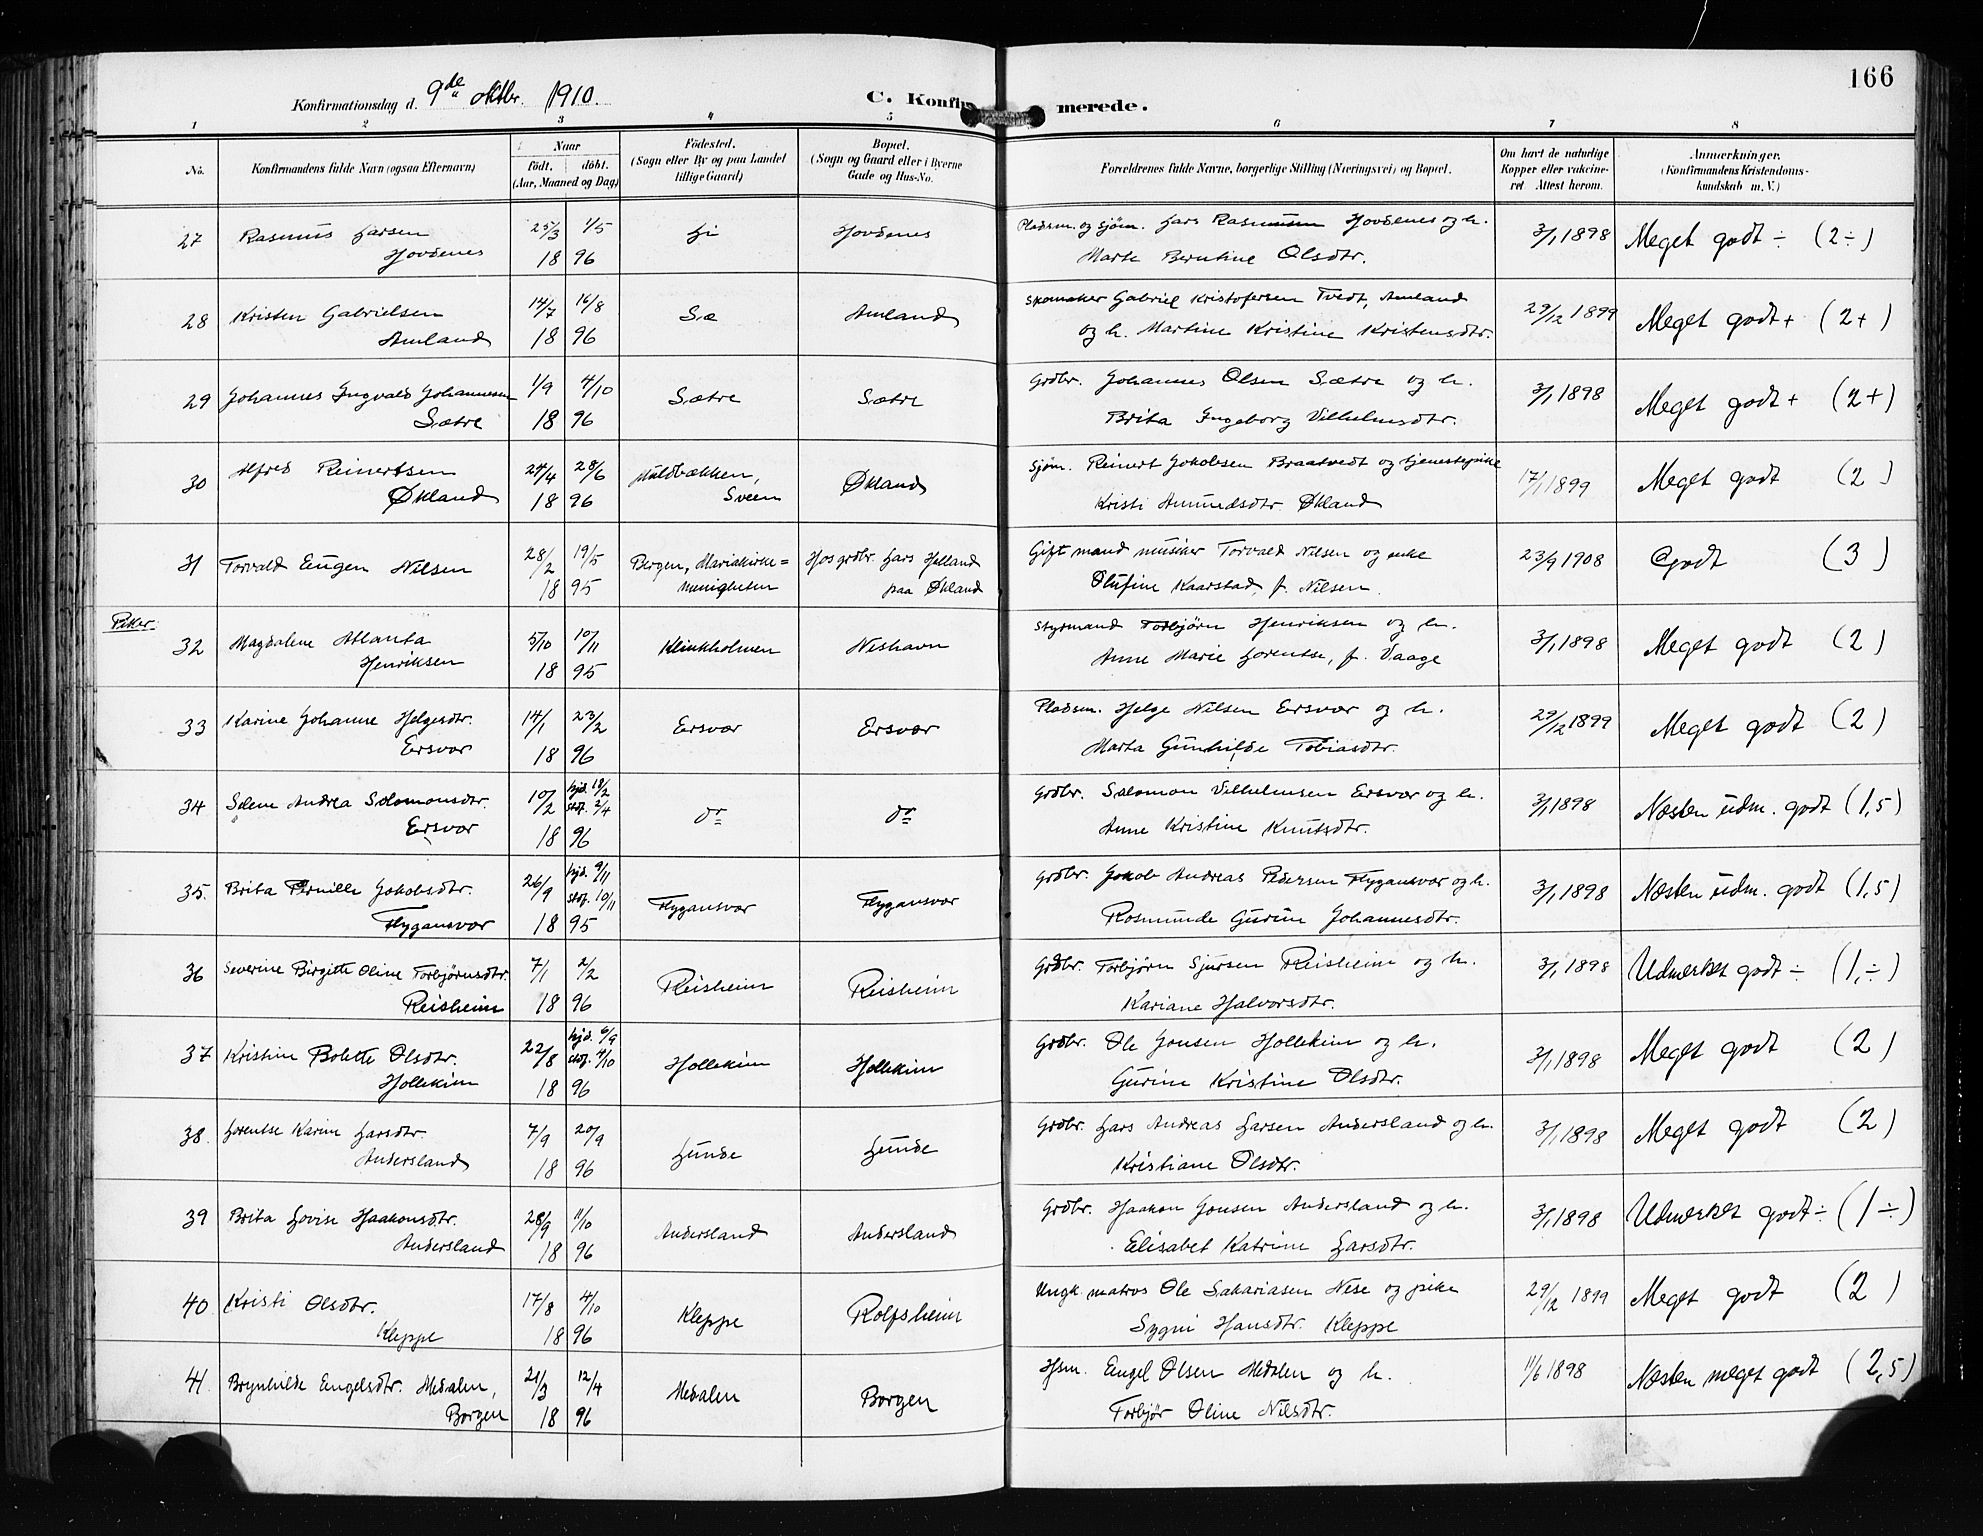 166
Konfirmationsdag d. 9de Oktbr. 1910.
C. Konfir merede.
1 2 3 4 5 6 7 8
No. Konfirmandens fulde Navn (ogsaa Efternavn) Naar født. døbt. (Aar, Maaned og Dag) Födested. (Sogn eller By og paa Landet tillige Gaard) Bopæl. (Sogn og Gaard eller i Byerne Gade og Hus-No. Forældrenes fulde Navne, borgerlige Stilling (Næringsvei) og Bopæl. Om havt de naturlige Kopper eller vakcineret. Attest herom. Anmærkninger. (Konfirmandens Kristendomskundskab m. V.)
27 Rasmus Larsen 25/3 1/5 Li Hovdenes Pladsm. og sjøm. Lars Rasmussen Hovdenes og h. 3/1 1898 Meget godt ÷ (2÷)
Hovdenes 18 96 Marta Berntine Olsdtr.
28 Kristen Gabrielsen 14/7 16/8 Sæ Amland Skomaker Gabriel Kristofersen Tvedt, Amland 29/12 1899 Meget godt + (2+)
Amland 18 96 og h. Martine Kristine Kristensdtr.
29 Johannes Ingvald Johannesen 1/9 4/10 Sætre Sætre Grdbr. Johannes Olsen Sætre og h. 3/1 1898 Meget godt + (2+)
Sætre 18 96 Brita Ingeborg Vilhelmsdtr.
30 Alfred Reinertsen 24/4 28/6 Muldbækken, Økland Sjøm. Reinert Jakobsen Braatvedt og tjenestepike 17/1 1899 Meget godt (2)
Økland 18 96 Sveen Kristi Amundsdtr. Økland
31 Torvald Eugen Nilsen 28/2 19/5 Bergen, Mariakirke= Hos grdbr. Lars Helland Gift mand musiker Torvald Nilsen og enke 23/9 1908 Godt (3)
18 95 menigheten paa Økland Olufine Kaarstad, f. Nilsen.
Piker:
32 Magdalene Atlanta 5/10 10/11 Klinkholmen Neshavn Styrmand Torbjørn Henriksen og h. 3/1 1898 Meget godt (2)
Henriksen 18 95 Anne Marie Lorentse, f. Vaage
33 Karine Johanne Helgesdtr. 14/1 23/2 Ersvær Ersvær Pladsm. Helge Nilsen Ersvær og h. 29/12 1899 Meget godt (2)
Ersvær 18 96 Marta Gunhilde Tobiasdtr.
34 Selene Andrea Salomonsdtr. 10/2 hjd. 18/2 stdf. 2/4 do do Grdbr. Salomon Vilhelmsen Ersvær og h. 3/1 1898 Næsten udm. godt (1,5)
Ersvær 18 96 Anne Kristine Knutsdtr.
35. Brita Pernille Jakobsdtr. 26/9 hjd. 9/11 stdf. 10/11 Flygansvær Flygansvær Grdbr. Jakob Andreas Pedersen Flygansvær og h. 3/1 1898 Næsten udm. godt (1,5)
Flygansvær 18 95 Rosmunde Gurine Johannesdtr.
36 Severine Birgitte Oline Torbjørnsdtr. 7/1 2/2 Reisheim Reisheim Grdbr. Torbjørn Sjursen Reisheim og h. 3/1 1898 Udmerket godt ÷ (1,÷)
Reisheim 18 96 Kariane Halvorsdtr.
37 Kristine Bolette Olsdtr. 22/8 hjd. 6/9 stdf. 4/10 Hollekim Hollekim Grdbr. Ole Jonsen Hollekim og h. 3/1 1898 Meget godt (2)
Hollekim 18 96 Gurine Kristine Olsdtr.
38. Lorentse Karine Larsdtr. 7/9 20/9 Lunde Lunde Grdbr. Lars Andreas Larsen Andersland og h. 3/1 1898 Meget godt (2)
Andersland 18 96 Kristiane Olsdtr.
39 Brita Lovise Haakonsdtr. 28/9 11/10 Andersland Andersland Grdbr. Haakon Jonsen Andersland og h. 3/1 1898 Udmerket godt ÷ (1 ÷)
Andersland 18 96 Elisabet Katrine Larsdtr.
40 Kristi Olsdtr. 17/8 4/10 Kleppe Rolfsheim Ungk. matros Ole Sakariasen Nese og pike 29/12 1899 Meget godt (2)
Kleppe 18 96 Sygni Hansdtr. Kleppe
41. Brynhilde Engelsdtr. Medalen, 21/3 12/4 Medalen Borgen Hsm. Engel Olsen Medalen og h. 11/6 1898 Næsten meget godt (2,5)
Borgen 18 96 Torbjør Oline Nilsdtr.